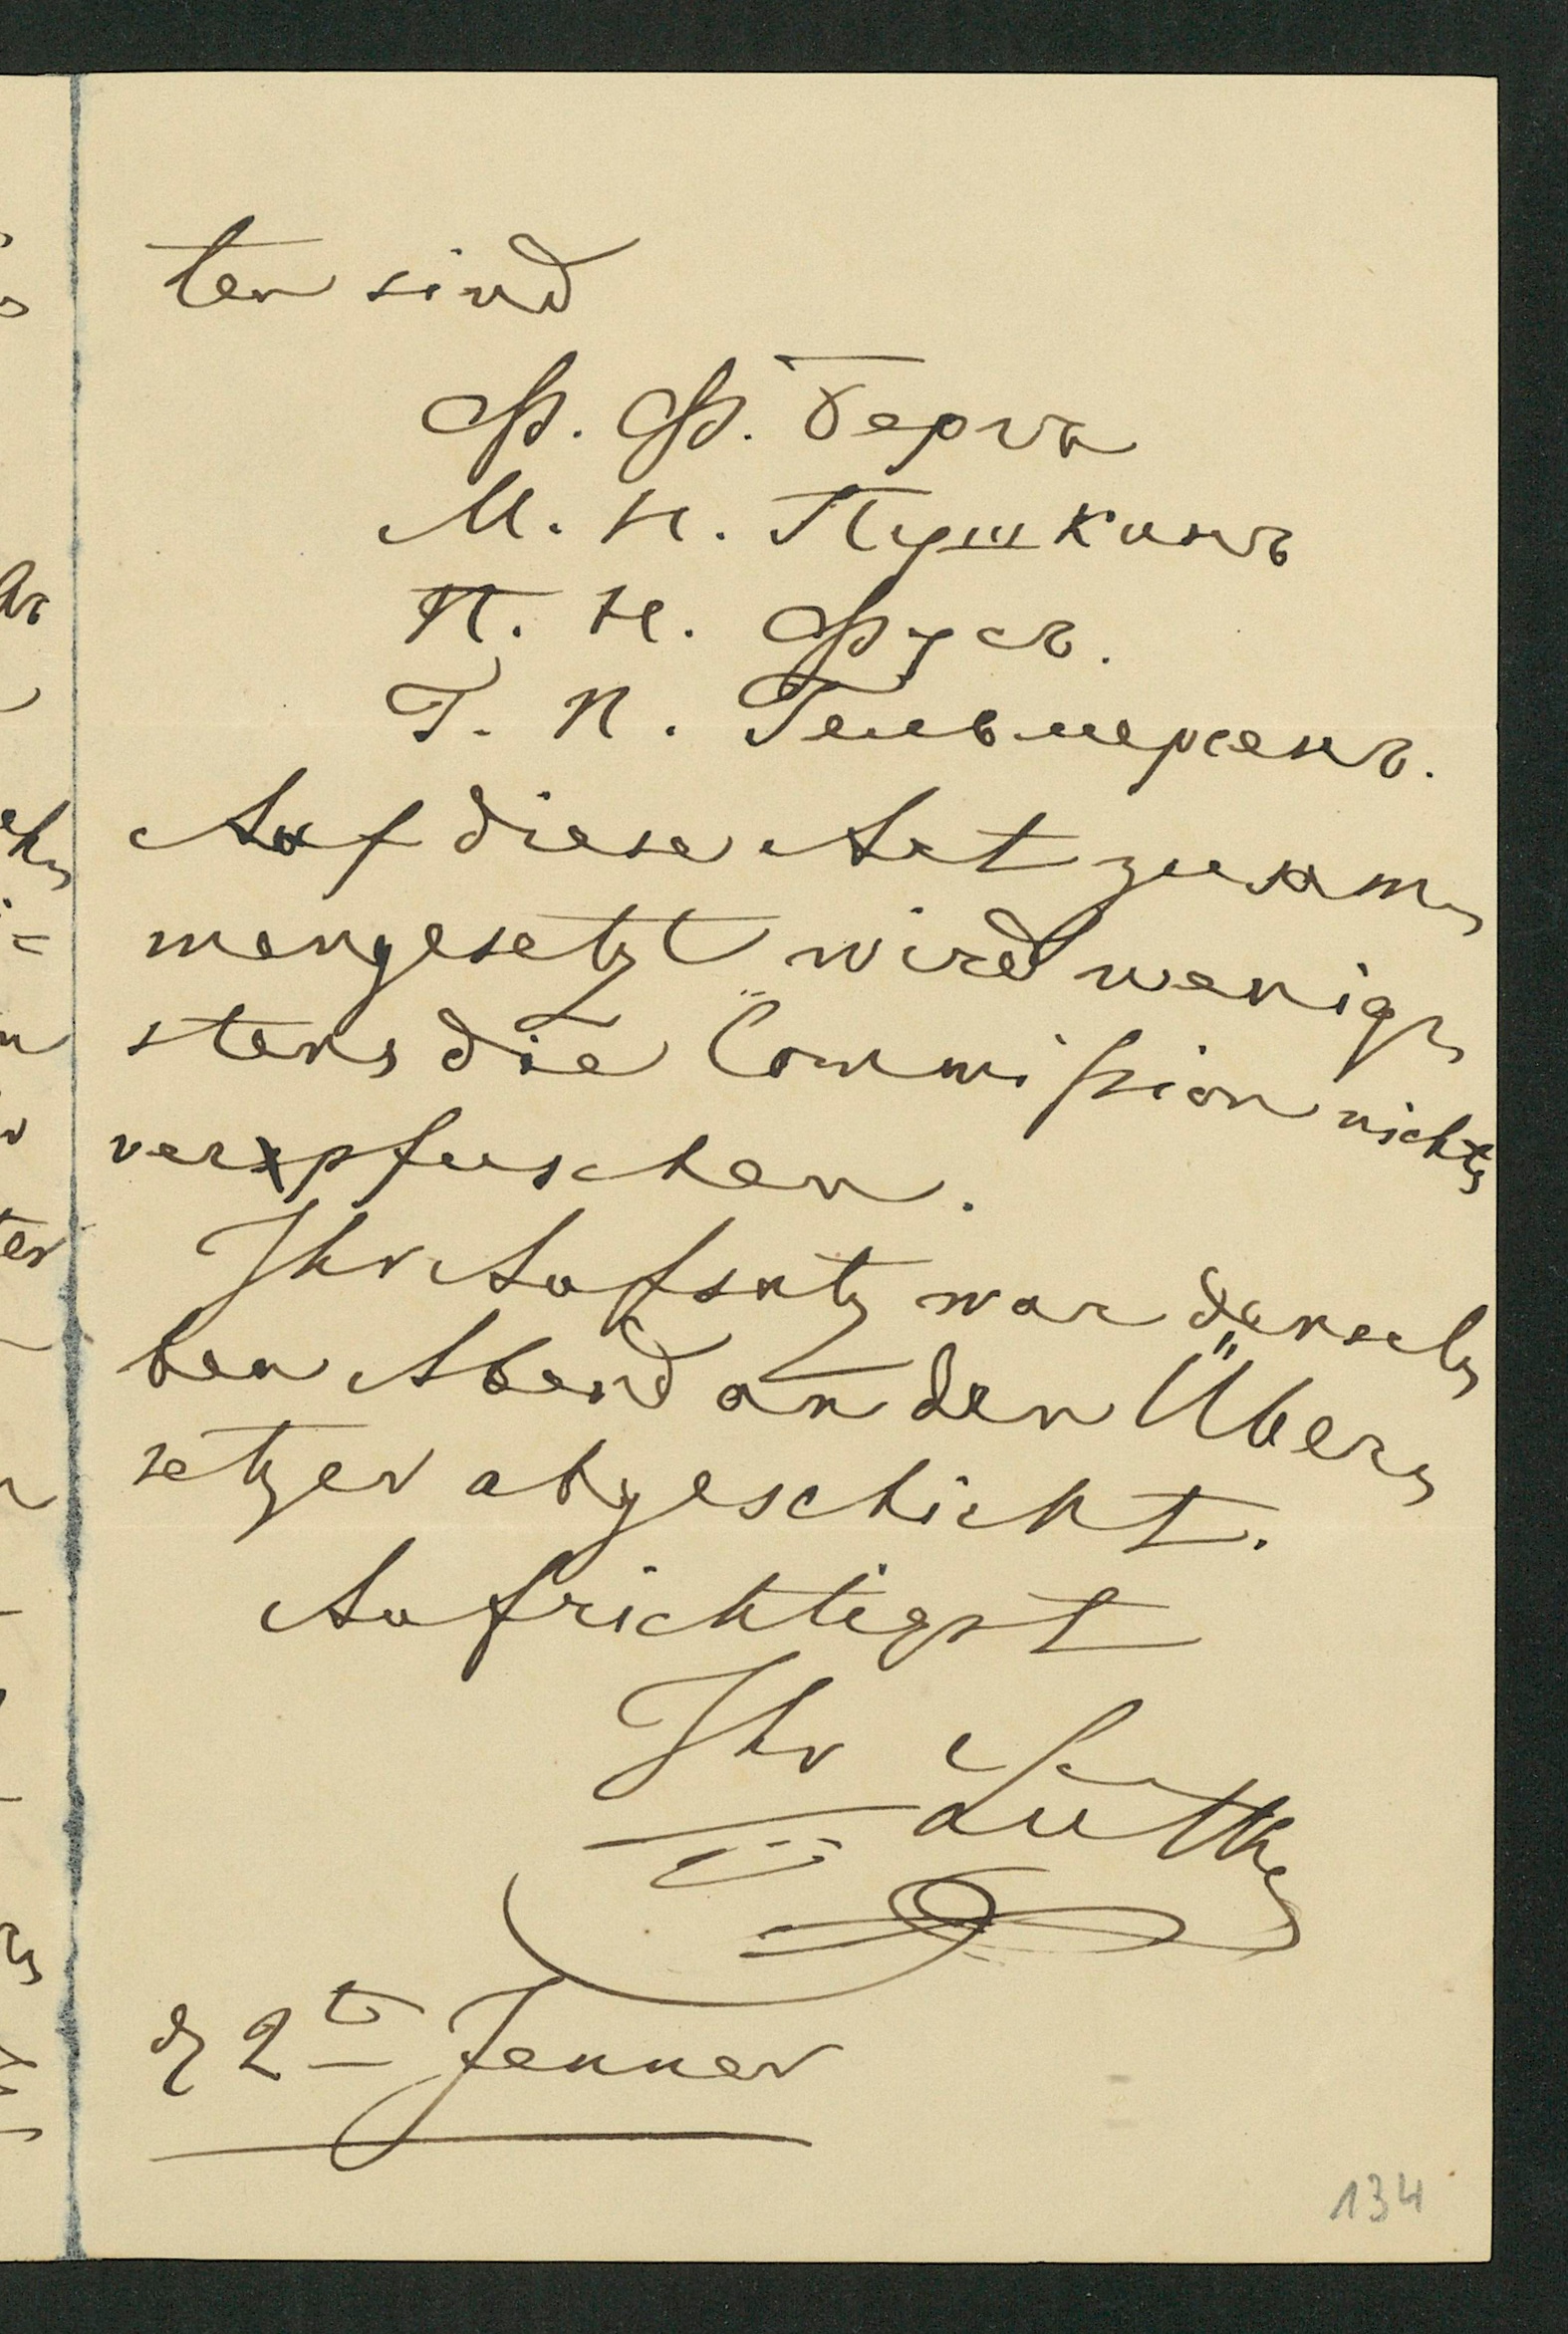 ten sind
Ф. Ф. Бергъ
М. Н. Пушкинъ
П. Н. Фусъ.
Г. П. Гельмерсенъ.
Auf diese Art zusam-
mengesetzt wird wenig-
stens die Commission nichts
verpfuschen.
Ihr Aufsatz war densel-
ben Abend an den Über-
setzer abgeschickt.
Aufrichtigst
Ihr Lütke
d 2ten Jenner
134